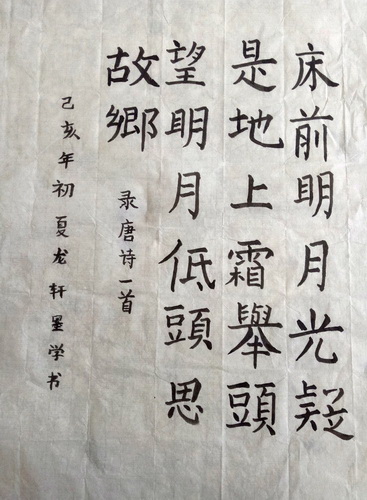 床前明月光疑
是地上霜舉頭
望明月低頭思
故鄉
录唐诗一首
己亥年初夏龙轩墨学书